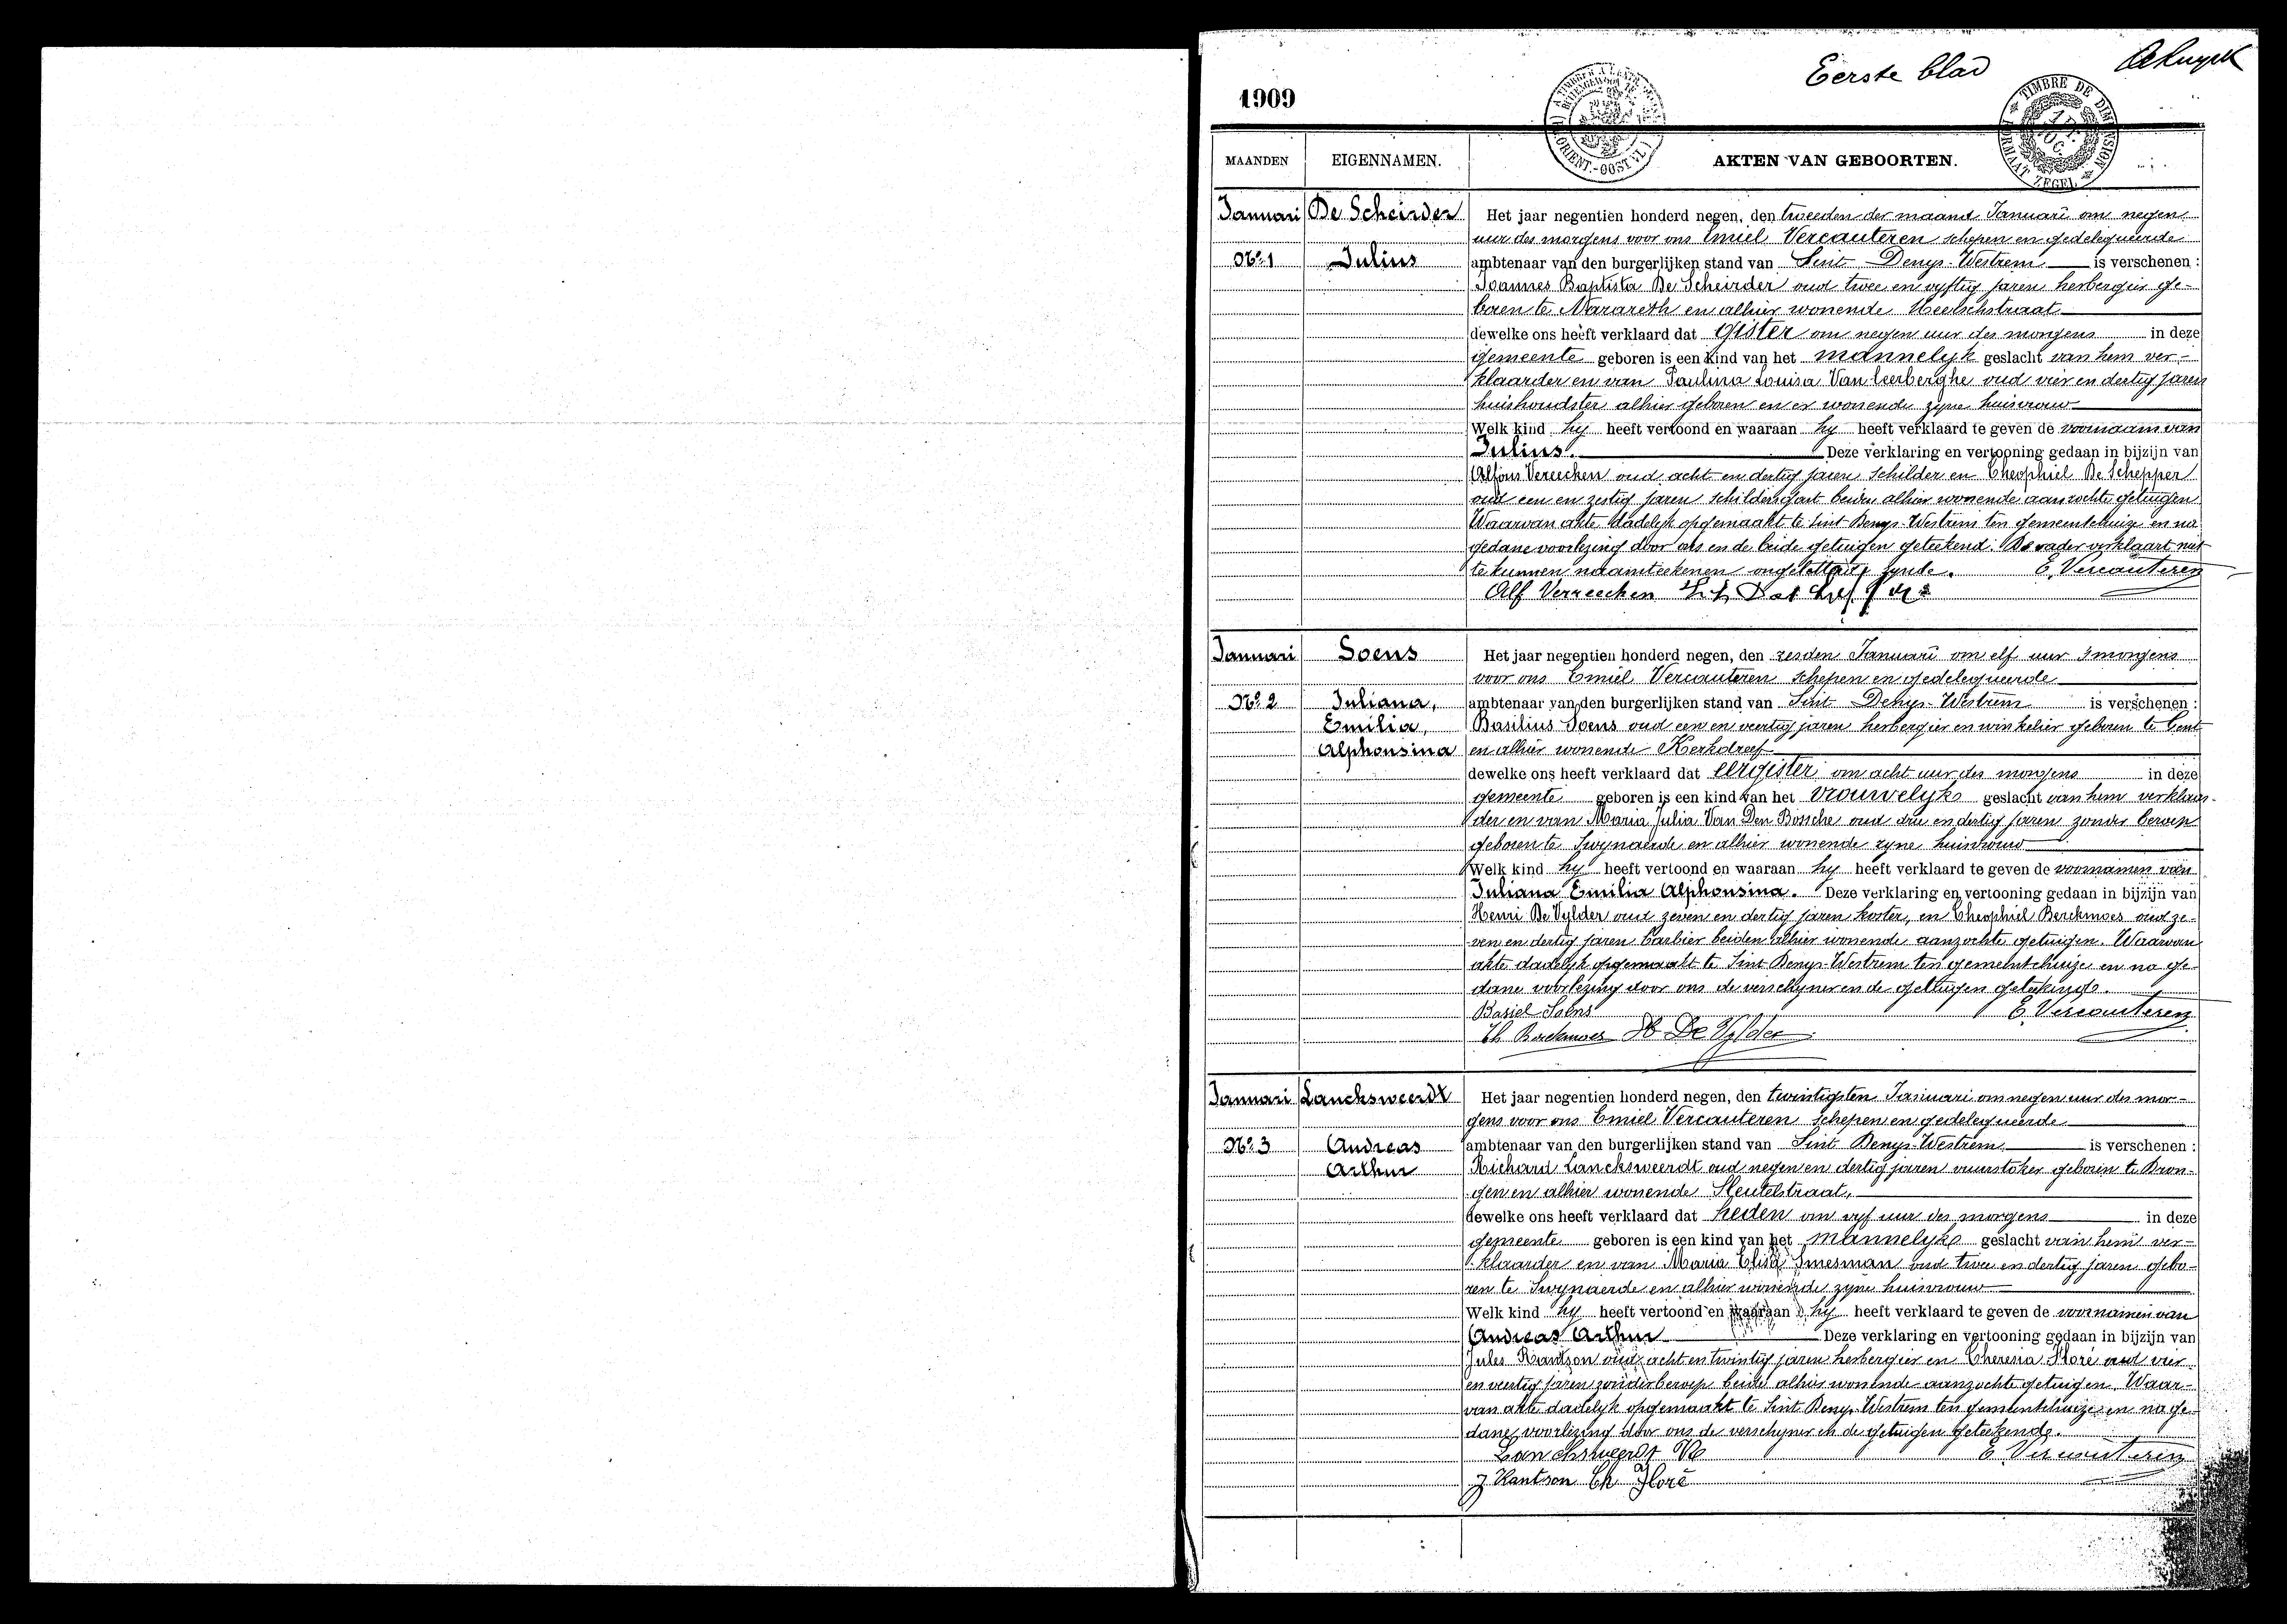 Eerste blad
1909
TIMBRE DE DIMENSION
FORMAAT ZEGEL
MAANDEN EIGENNAMEN. AKTEN VAN GEBOORTEN.
Januari De Scheirder Het jaar negentien honderd negen, den tweeden der maand Januari om negen
uur des morgens voor ons Emiel Vercauteren schepen en gedelegueerde
No. 1 Julius ambtenaar van den burgerlijken stand van Sint Denys-Westrem is verschenen :
Joannes Baptista De Scheirder oud twee en vyftig jaren herbergier ge-
boren te Nazareth en alhier wonende
dewelke ons heeft verklaard dat gister om negen uur des morgens in deze
gemeente geboren is een kind van het mannelyk geslacht van hem ver-
klaarder en van Paulina Louisa Van Ceerberghe oud vier en dertig jaren
huishoudster alhier geboren en er wonende zyne huisvrouw
Welk kind hy heeft vertoond en waaraan hy heeft verklaard te geven de voornaam van
Julius. Deze verklaring en vertooning gedaan in bijzijn van
Alfons Vereecken oud acht en dertig jaren schilder en Theophiel De Schepper
oud een en zestig jaren schildersgast beiden alhier wonende aanzochte getuigen
Waarvan akte dadelyk opgemaakt te Sint-Denys-Westrem ten gemeentehuize en na
gedane voorlezing door ons en de beide getuigen geteekend. De vader verklaart niet
te kunnen naamteekenen ongeletterd zynde. E. Vercauteren
Alf Verreecken
Januari Soens Het jaar negentien honderd negen, den zesden Januari om elf uur 's morgens
voor ons Emiel Vercauteren schepen en gedelegueerde
No. 2 Juliana, ambtenaar van den burgerlijken stand van Sint Denys-Westrem is verschenen :
Emilia, Basilius Soens oud een en veertig jaren herbergier en winkelier geboren te Gent
Alphonsina en alhier wonende Kerkdreef
dewelke ons heeft verklaard dat eergister om acht uur des morgens in deze
gemeente geboren is een kind van het vrouwelyk geslacht van hem verklaar-
der en van Maria Julia Van Den Bossche oud drie en dertig jaren zonder beroep
geboren te Swynaerde en alhier wonende zyne huisvrouw
Welk kind hy heeft vertoond en waaraan hy heeft verklaard te geven de voornamen van
Juliana Emilia Alphonsina. Deze verklaring en vertooning gedaan in bijzijn van
Henri De Vylder oud zeven en dertig jaren koster, en Theophiel Berckmoes oud ze-
ven en dertig jaren barbier beiden alhier wonende aanzochte getuigen. Waarvan
akte dadelyk opgemaakt te Sint-Denys-Westrem ten gemeentehuize en na ge-
dane voorlezing door ons de verschyner en de getuigen geteekend.
Basiel Soens E. Vercauteren
Th Berckmoes H De Vylder
Januari Lancksweerdt Het jaar negentien honderd negen, den twintigsten Januari om negen uur des mor-
gens voor ons Emiel Vercauteren schepen en gedelegueerde
No. 3 Andreas ambtenaar van den burgerlijken stand van Sint Denys-Westrem is verschenen :
Arthur Richard Lancksweerdt oud negen en dertig jaren vuurstoker geboren te Dron-
gen en alhier wonende Sleutelstraat,
dewelke ons heeft verklaard dat heden om vyf uur des morgens in deze
gemeente geboren is een kind van het mannelyk geslacht van hem ver-
klaarder en van Maria Elisa Smesman oud twee en dertig jaren gebo-
ren te Swynaerde en alhier wonende zyne huisvrouw
Welk kind hy heeft vertoond en waaraan hy heeft verklaard te geven de voornamen van
Andreas Arthur Deze verklaring en vertooning gedaan in bijzijn van
Jules Kantson oud acht en twintig jaren herbergier en Theresia Floré oud vier
en veertig jaren zonder beroep beide alhier wonende aanzochte getuigen. Waar-
van akte dadelyk opgemaakt te Sint Denys Westrem ten gemeentehuize en na ge-
dane voorlezing door ons de verschyner en de getuigen geteekend.
Lancksweerdt E. Vercauteren
J Kantson Th Floré